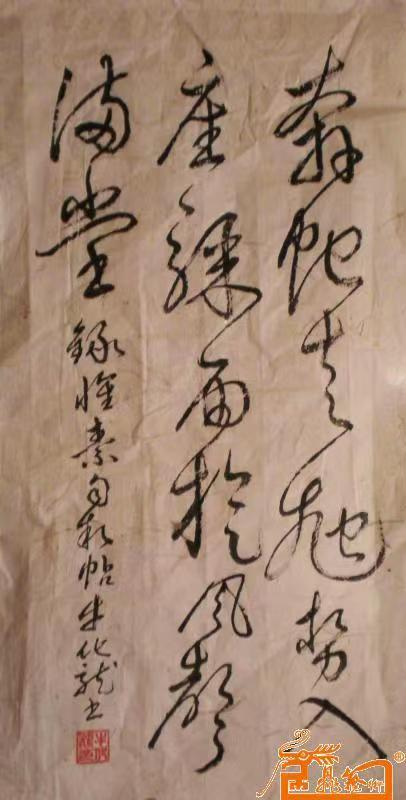 奔蛇走虺势入
座骤雨旋风声
满堂
録怀素自叙帖牛化龙书